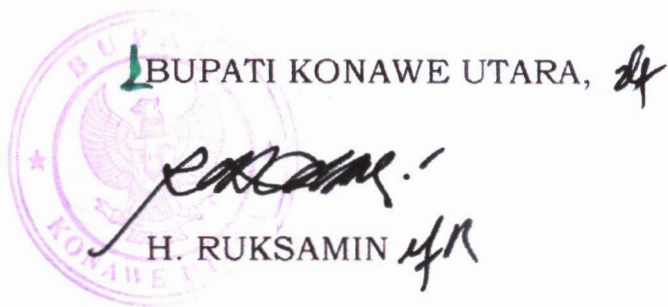 BUPATI KONAWE UTARA,
H. RUKSAMIN
BUPATI
KONAWE UTARA